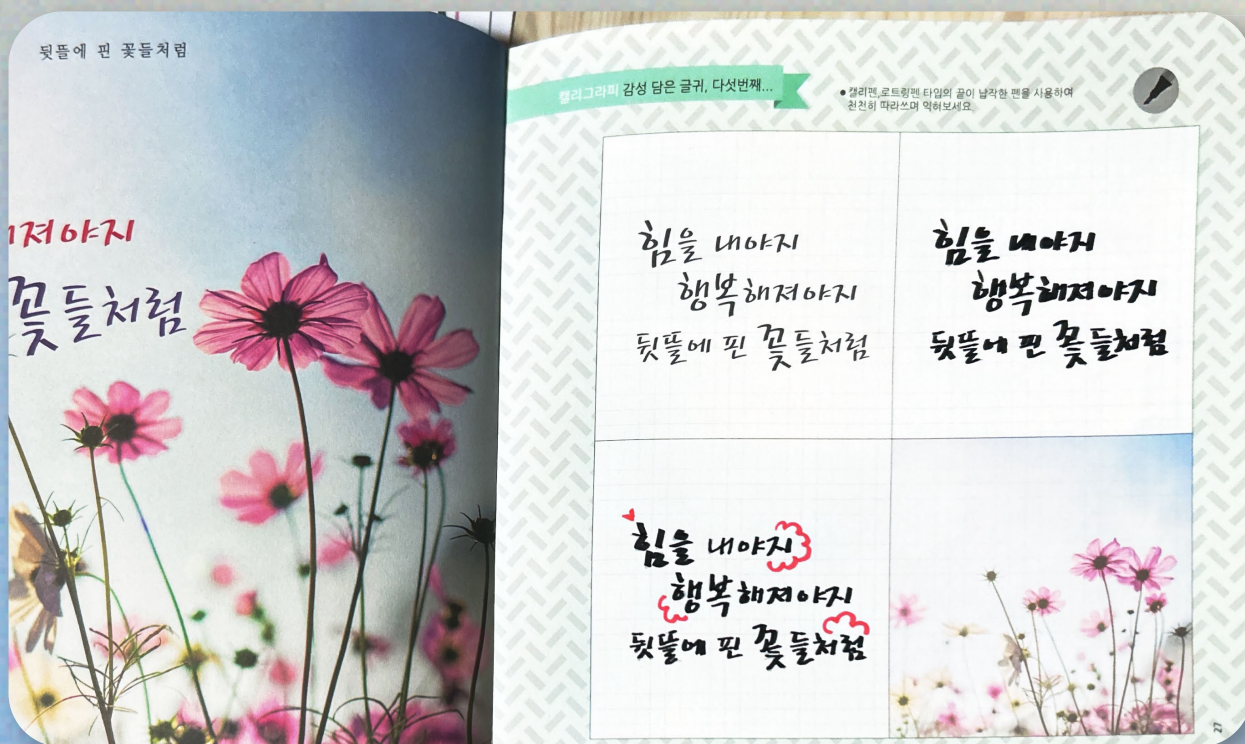 뒷뜰에 핀 꽃들처럼
져야지
꽃들처럼
캘리그라피 감성 담은 글귀, 다섯번째...
●캘리펜,로트링펜 타입의 끝이 납작한 펜을 사용하여
천천히 따라쓰며 익혀보세요.
힘을 내야지
행복해져야지
뒷뜰에 핀 꽃들처럼
힘을 내야지
행복해져야지
뒷뜰에 핀 꽃들처럼
힘을 내야지
행복해져야지
뒷뜰에 핀 꽃들처럼
27